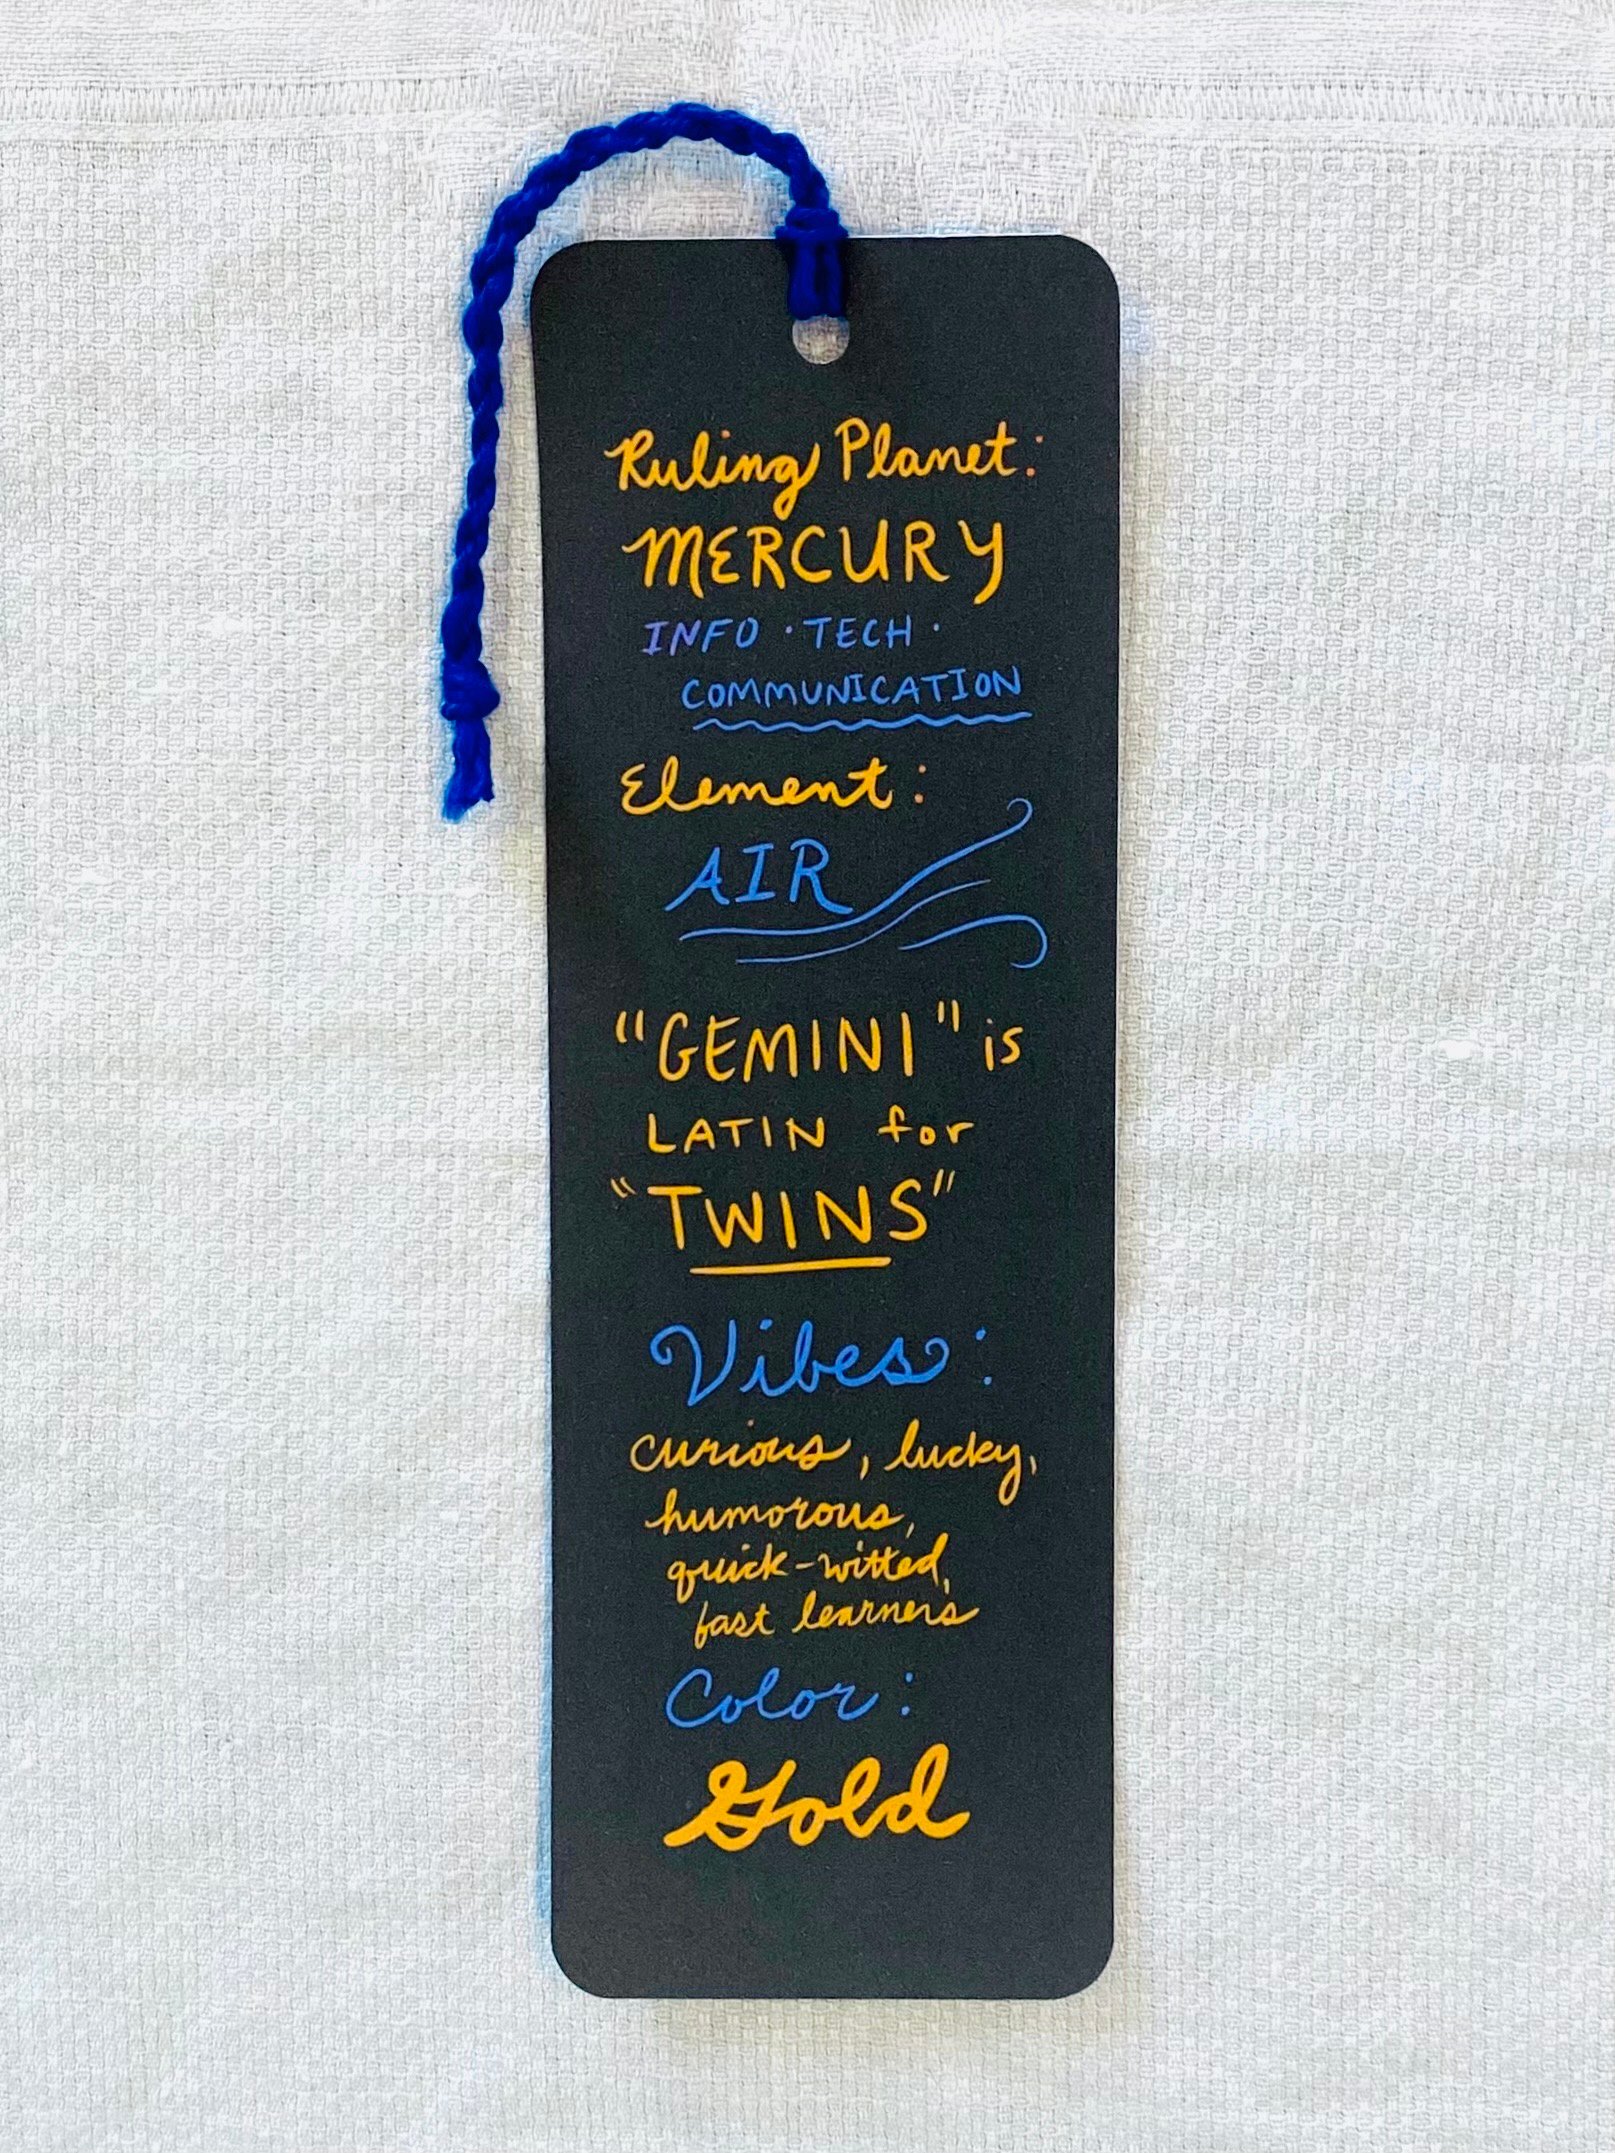 Ruling Planet:
MERCURY
INFO · TECH ·
COMMUNICATION
Element:
AIR
"GEMINI" is
LATIN for
"TWINS"
Vibes:
curious, lucky,
humorous,
quick-witted,
fast learners
Color:
Gold